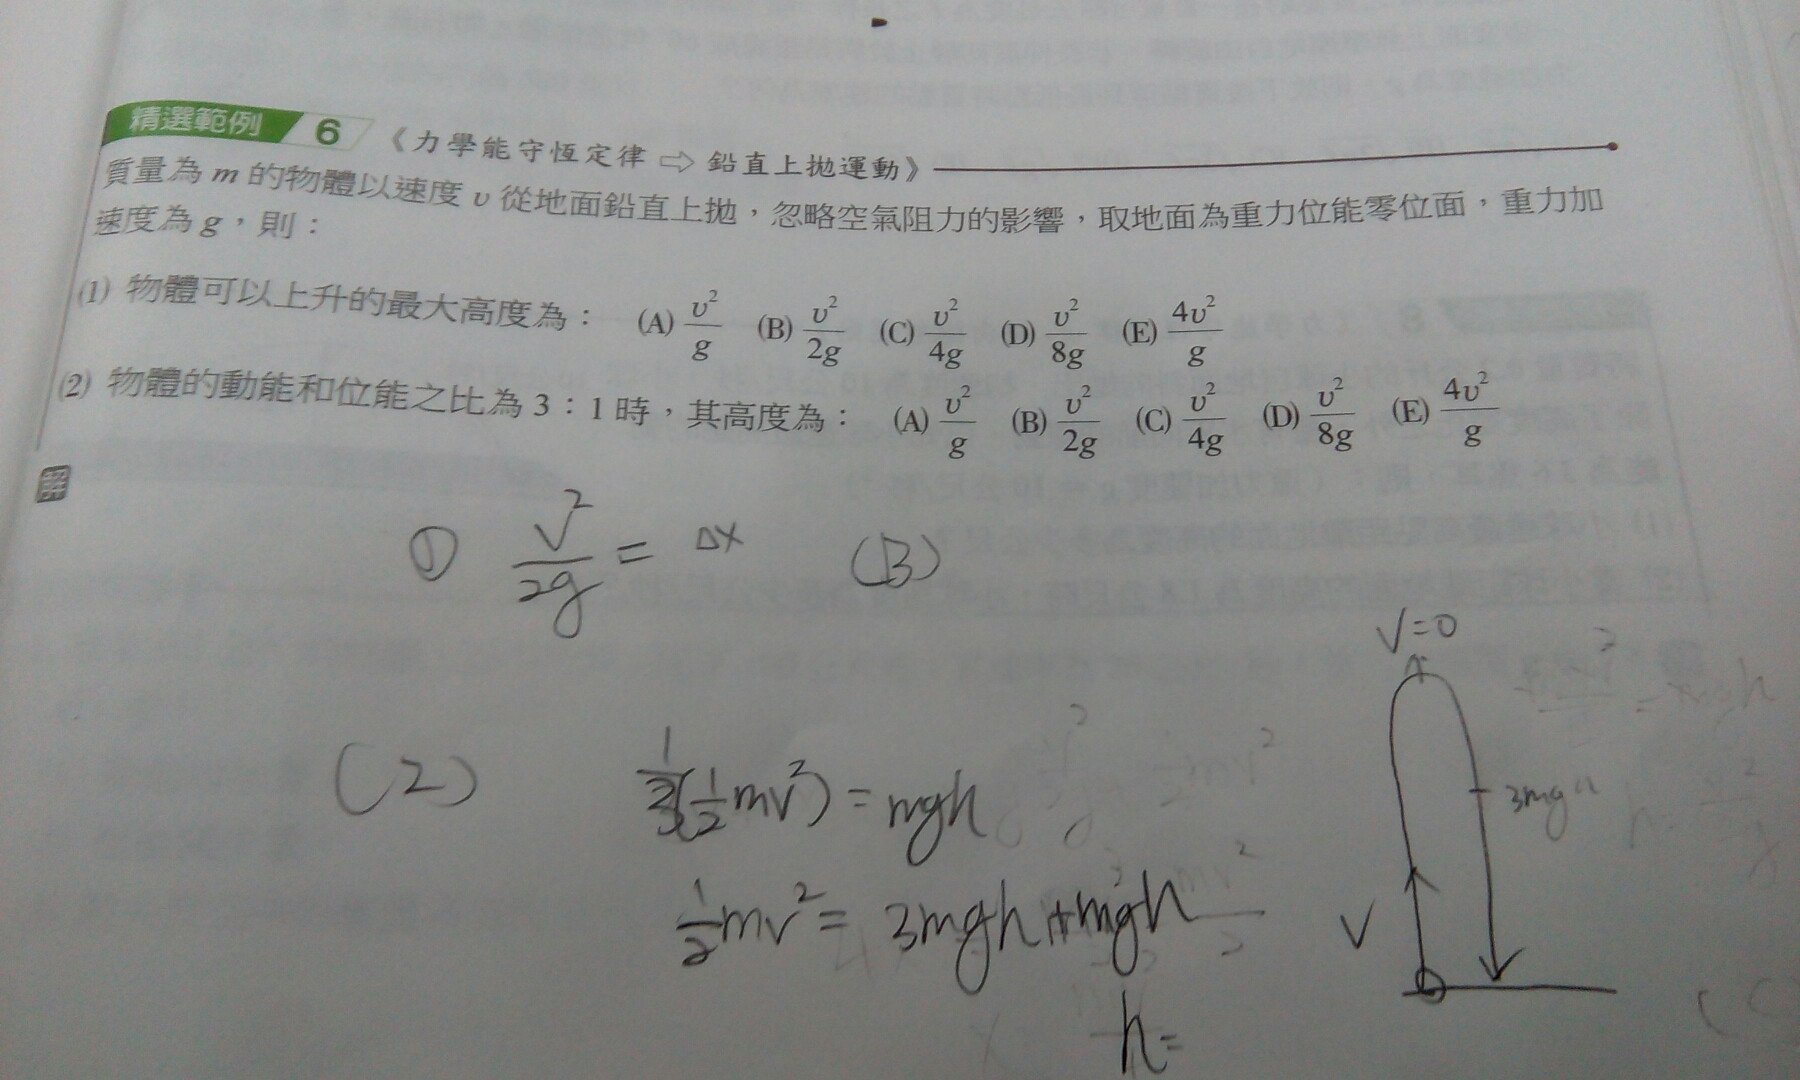 精選範例 6 《力學能守恆定律⇨鉛直上拋運動》
質量為 m 的物體以速度 υ 從地面鉛直上拋，忽略空氣阻力的影響，取地面為重力位能零位面，重力加
速度為 g，則：
(1) 物體可以上升的最大高度為： (A) υ²/g (B) υ²/2g (C) υ²/4g (D) υ²/8g (E) 4υ²/g
(2) 物體的動能和位能之比為 3：1 時，其高度為： (A) υ²/g (B) υ²/2g (C) υ²/4g (D) υ²/8g (E) 4υ²/g
解
① V²/2g = Δx (B)
V=0
(2) 1/3(1/2mv²) = mgh
3mgh
1/2mv² = 3mgh+mgh
V
h=